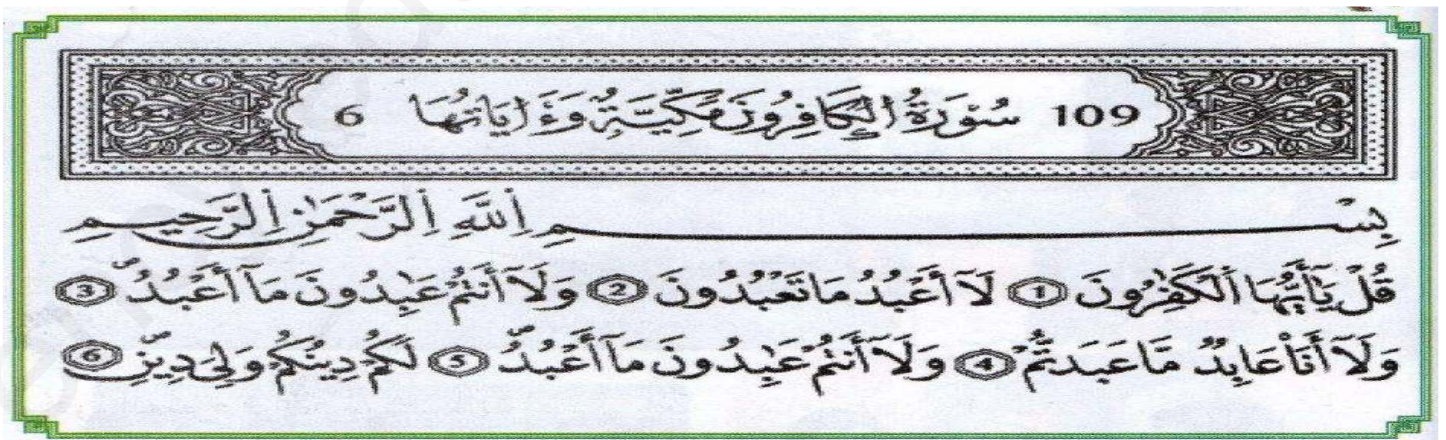 109 سُورَةُ الْكَافِرُونَ مَكِّيَّةٌ وَءَايَاتُهَا 6
بِسْمِ اِللَّهِ اِلرَّحْمَٰنِ اِلرَّحِيمِ
قُلْ يَٰٓأَيُّهَا اَلْكَٰفِرُونَ 1 لَآ أَعْبُدُ مَا تَعْبُدُونَ 2 وَلَآ أَنتُمْ عَٰبِدُونَ مَآ أَعْبُدُ 3
وَلَآ أَنَا عَابِدٌ مَّا عَبَدتُّمْ 4 وَلَآ أَنتُمْ عَٰبِدُونَ مَآ أَعْبُدُ 5 لَكُمْ دِينُكُمْ وَلِيَ دِينِ 6